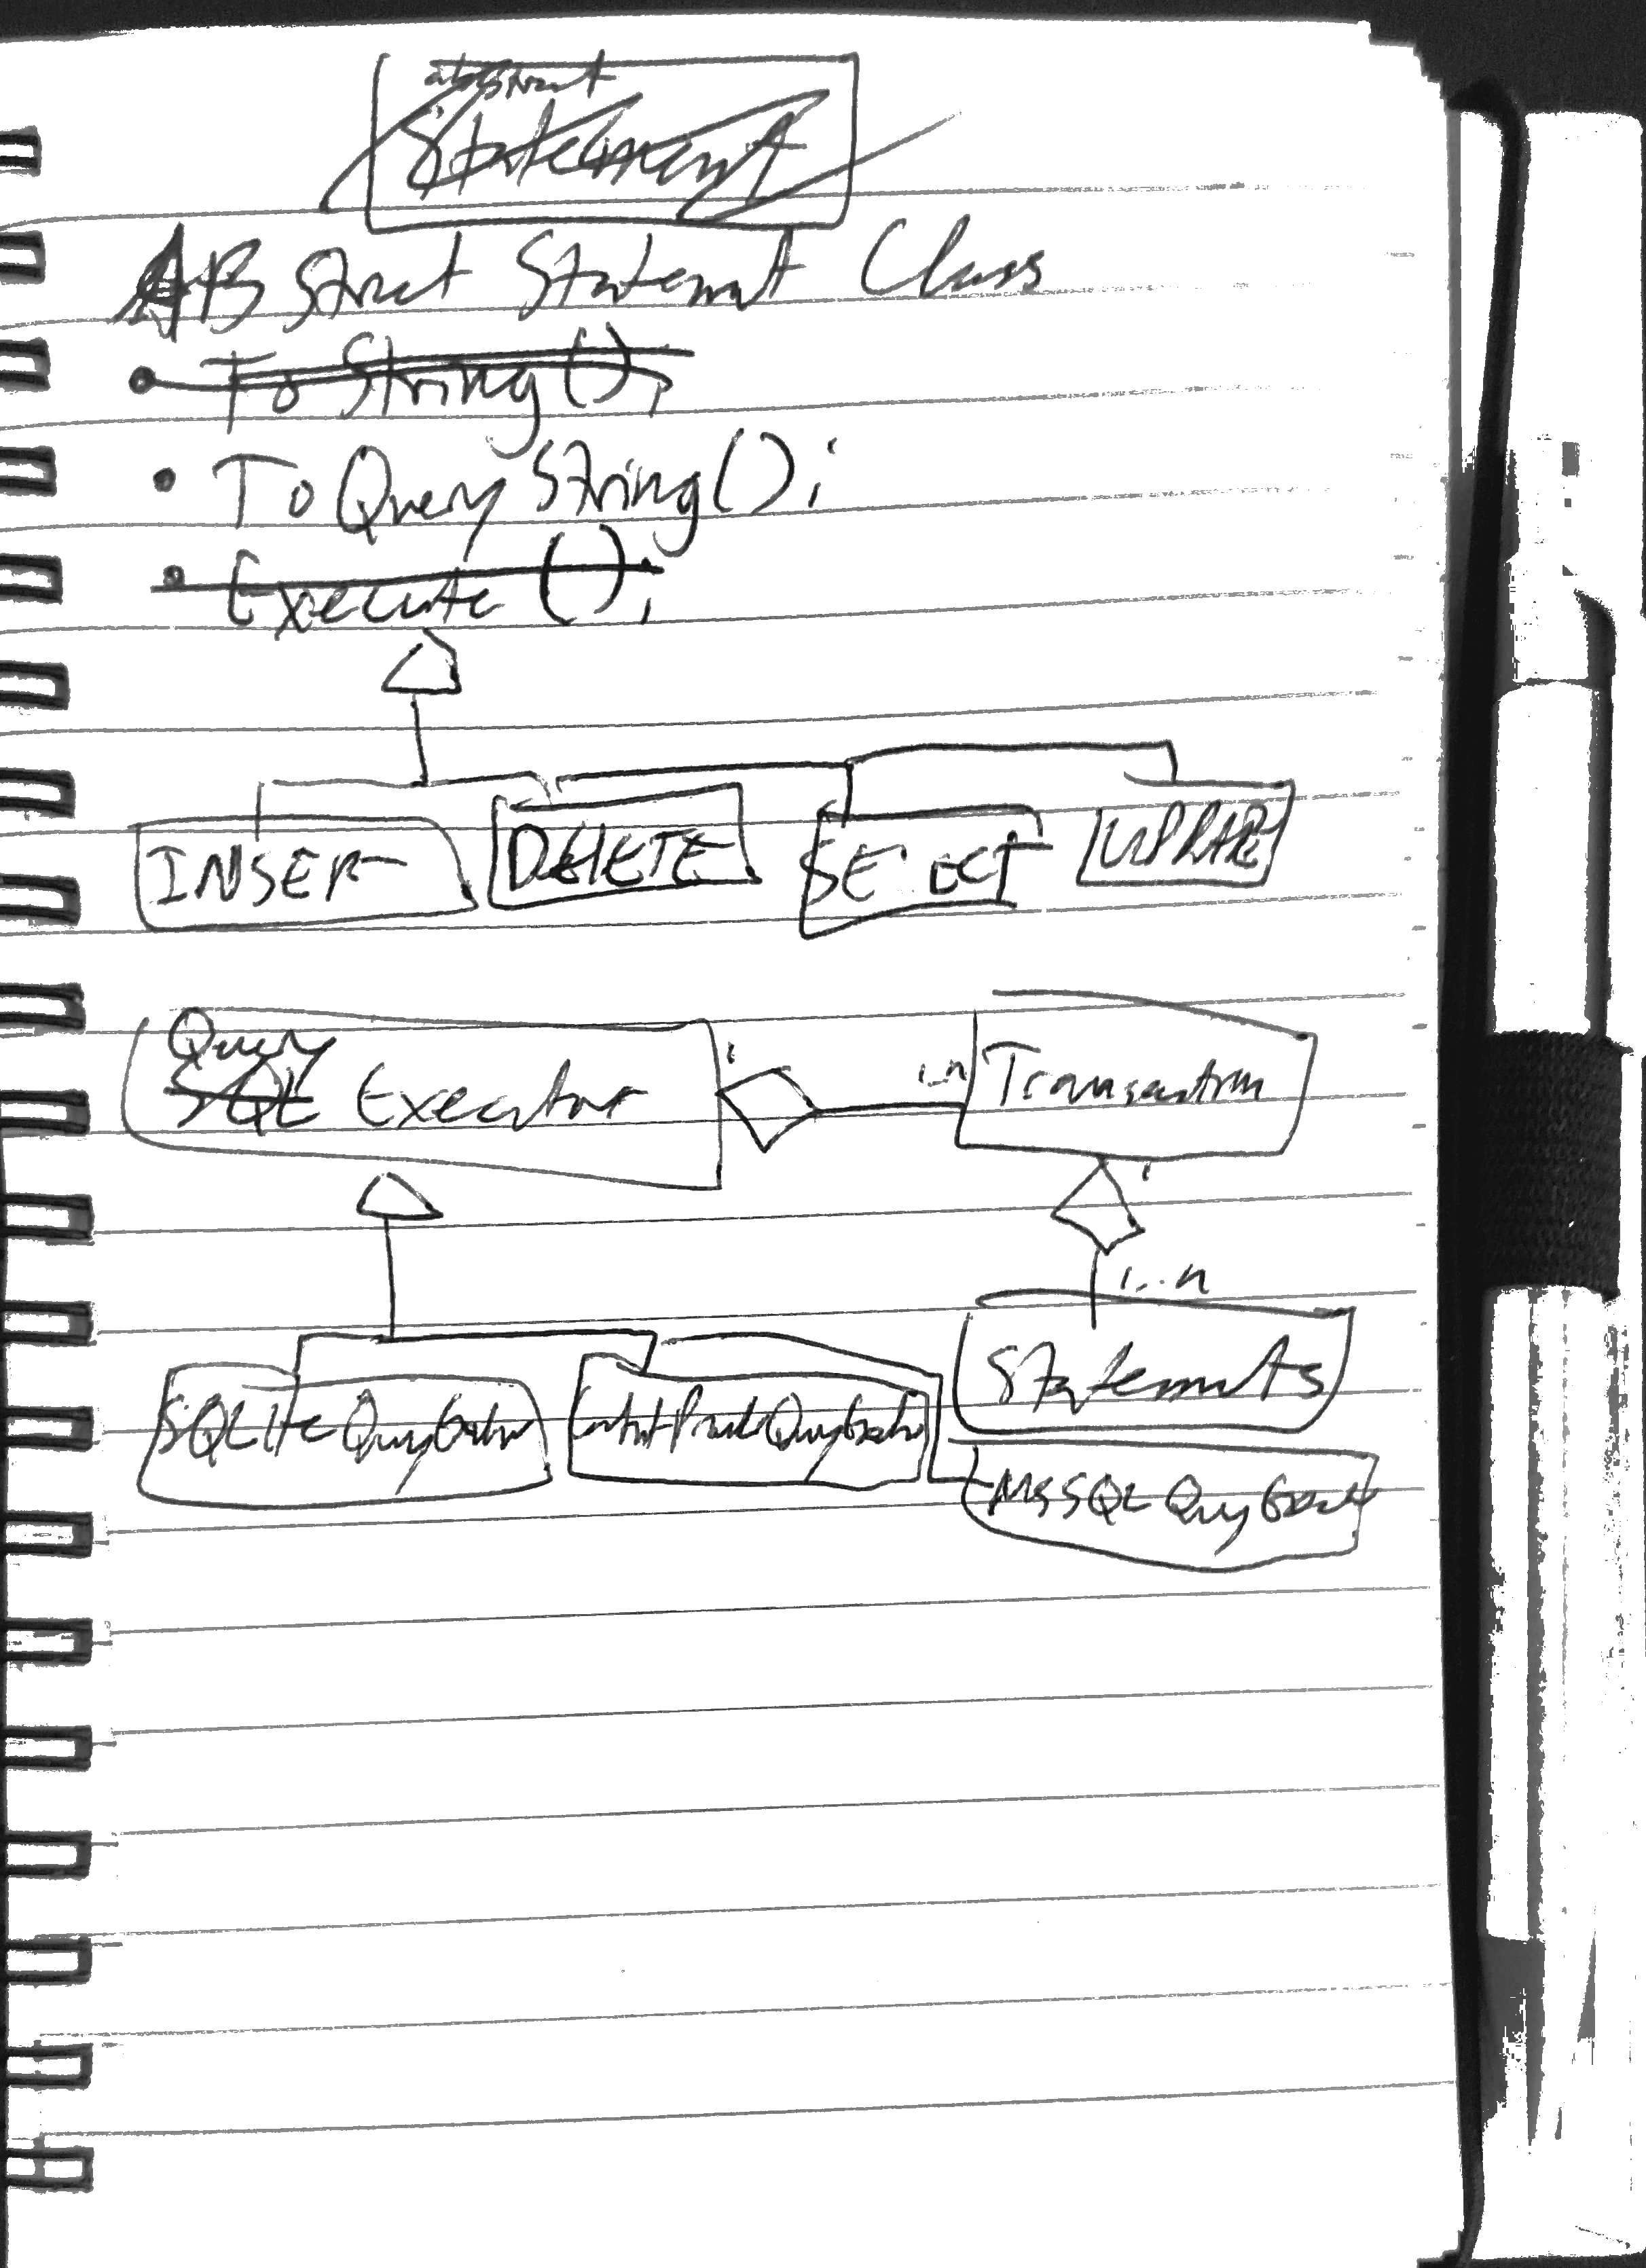 abstract
Statement
ABstract Statemnt Class
• To String();
• To Query String();
• Execute();
INSERT DELETE SELECT UPDATE
Query
SQL Executor 1 1..n Transaction
1
1...n
Statemnts
SQLite QueryExecutor QueryExecutor
MSSQL QueryExecutor